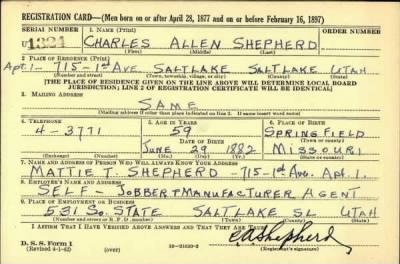 REGISTRATION CARD—(Men born on or after April 28, 1877 and on or before February 16, 1897)
SERIAL NUMBER 1. NAME (Print) ORDER NUMBER
U 1324 CHARLES ALLEN SHEPHERD
(First) (Middle) (Last)
2. PLACE OF RESIDENCE (Print)
Apt. 1- 715-1st AVE. SALT LAKE SALT LAKE UTAH
(Number and street) (Town, township, village, or city) (County) (State)
[THE PLACE OF RESIDENCE GIVEN ON THE LINE ABOVE WILL DETERMINE LOCAL BOARD
JURISDICTION; LINE 2 OF REGISTRATION CERTIFICATE WILL BE IDENTICAL]
3. MAILING ADDRESS
SAME
(Mailing address if other than place indicated on line 2. If same insert word same)
4. TELEPHONE 5. AGE IN YEARS 6. PLACE OF BIRTH
4-3771 59 SPRINGFIELD
DATE OF BIRTH (Town or county)
JUNE 29 1882 MISSOURI
(Exchange) (Number) (Mo.) (Day) (Yr.) (State or country)
7. NAME AND ADDRESS OF PERSON WHO WILL ALWAYS KNOW YOUR ADDRESS
MATTIE T. SHEPHERD -715-1st Ave. Apt. 1.
8. EMPLOYER'S NAME AND ADDRESS
SELF - JOBBER & MANUFACTURER AGENT
9. PLACE OF EMPLOYMENT OR BUSINESS
531 So. STATE SALT LAKE S.L UTAH
(Number and street or R. F. D. number) (Town) (County) (State)
I AFFIRM THAT I HAVE VERIFIED ABOVE ANSWERS AND THAT THEY ARE TRUE.
D. S. S. Form 1 C A Shepherd
(Revised 4-1-42) (over) 16-21630-2 (Registrant's signature)